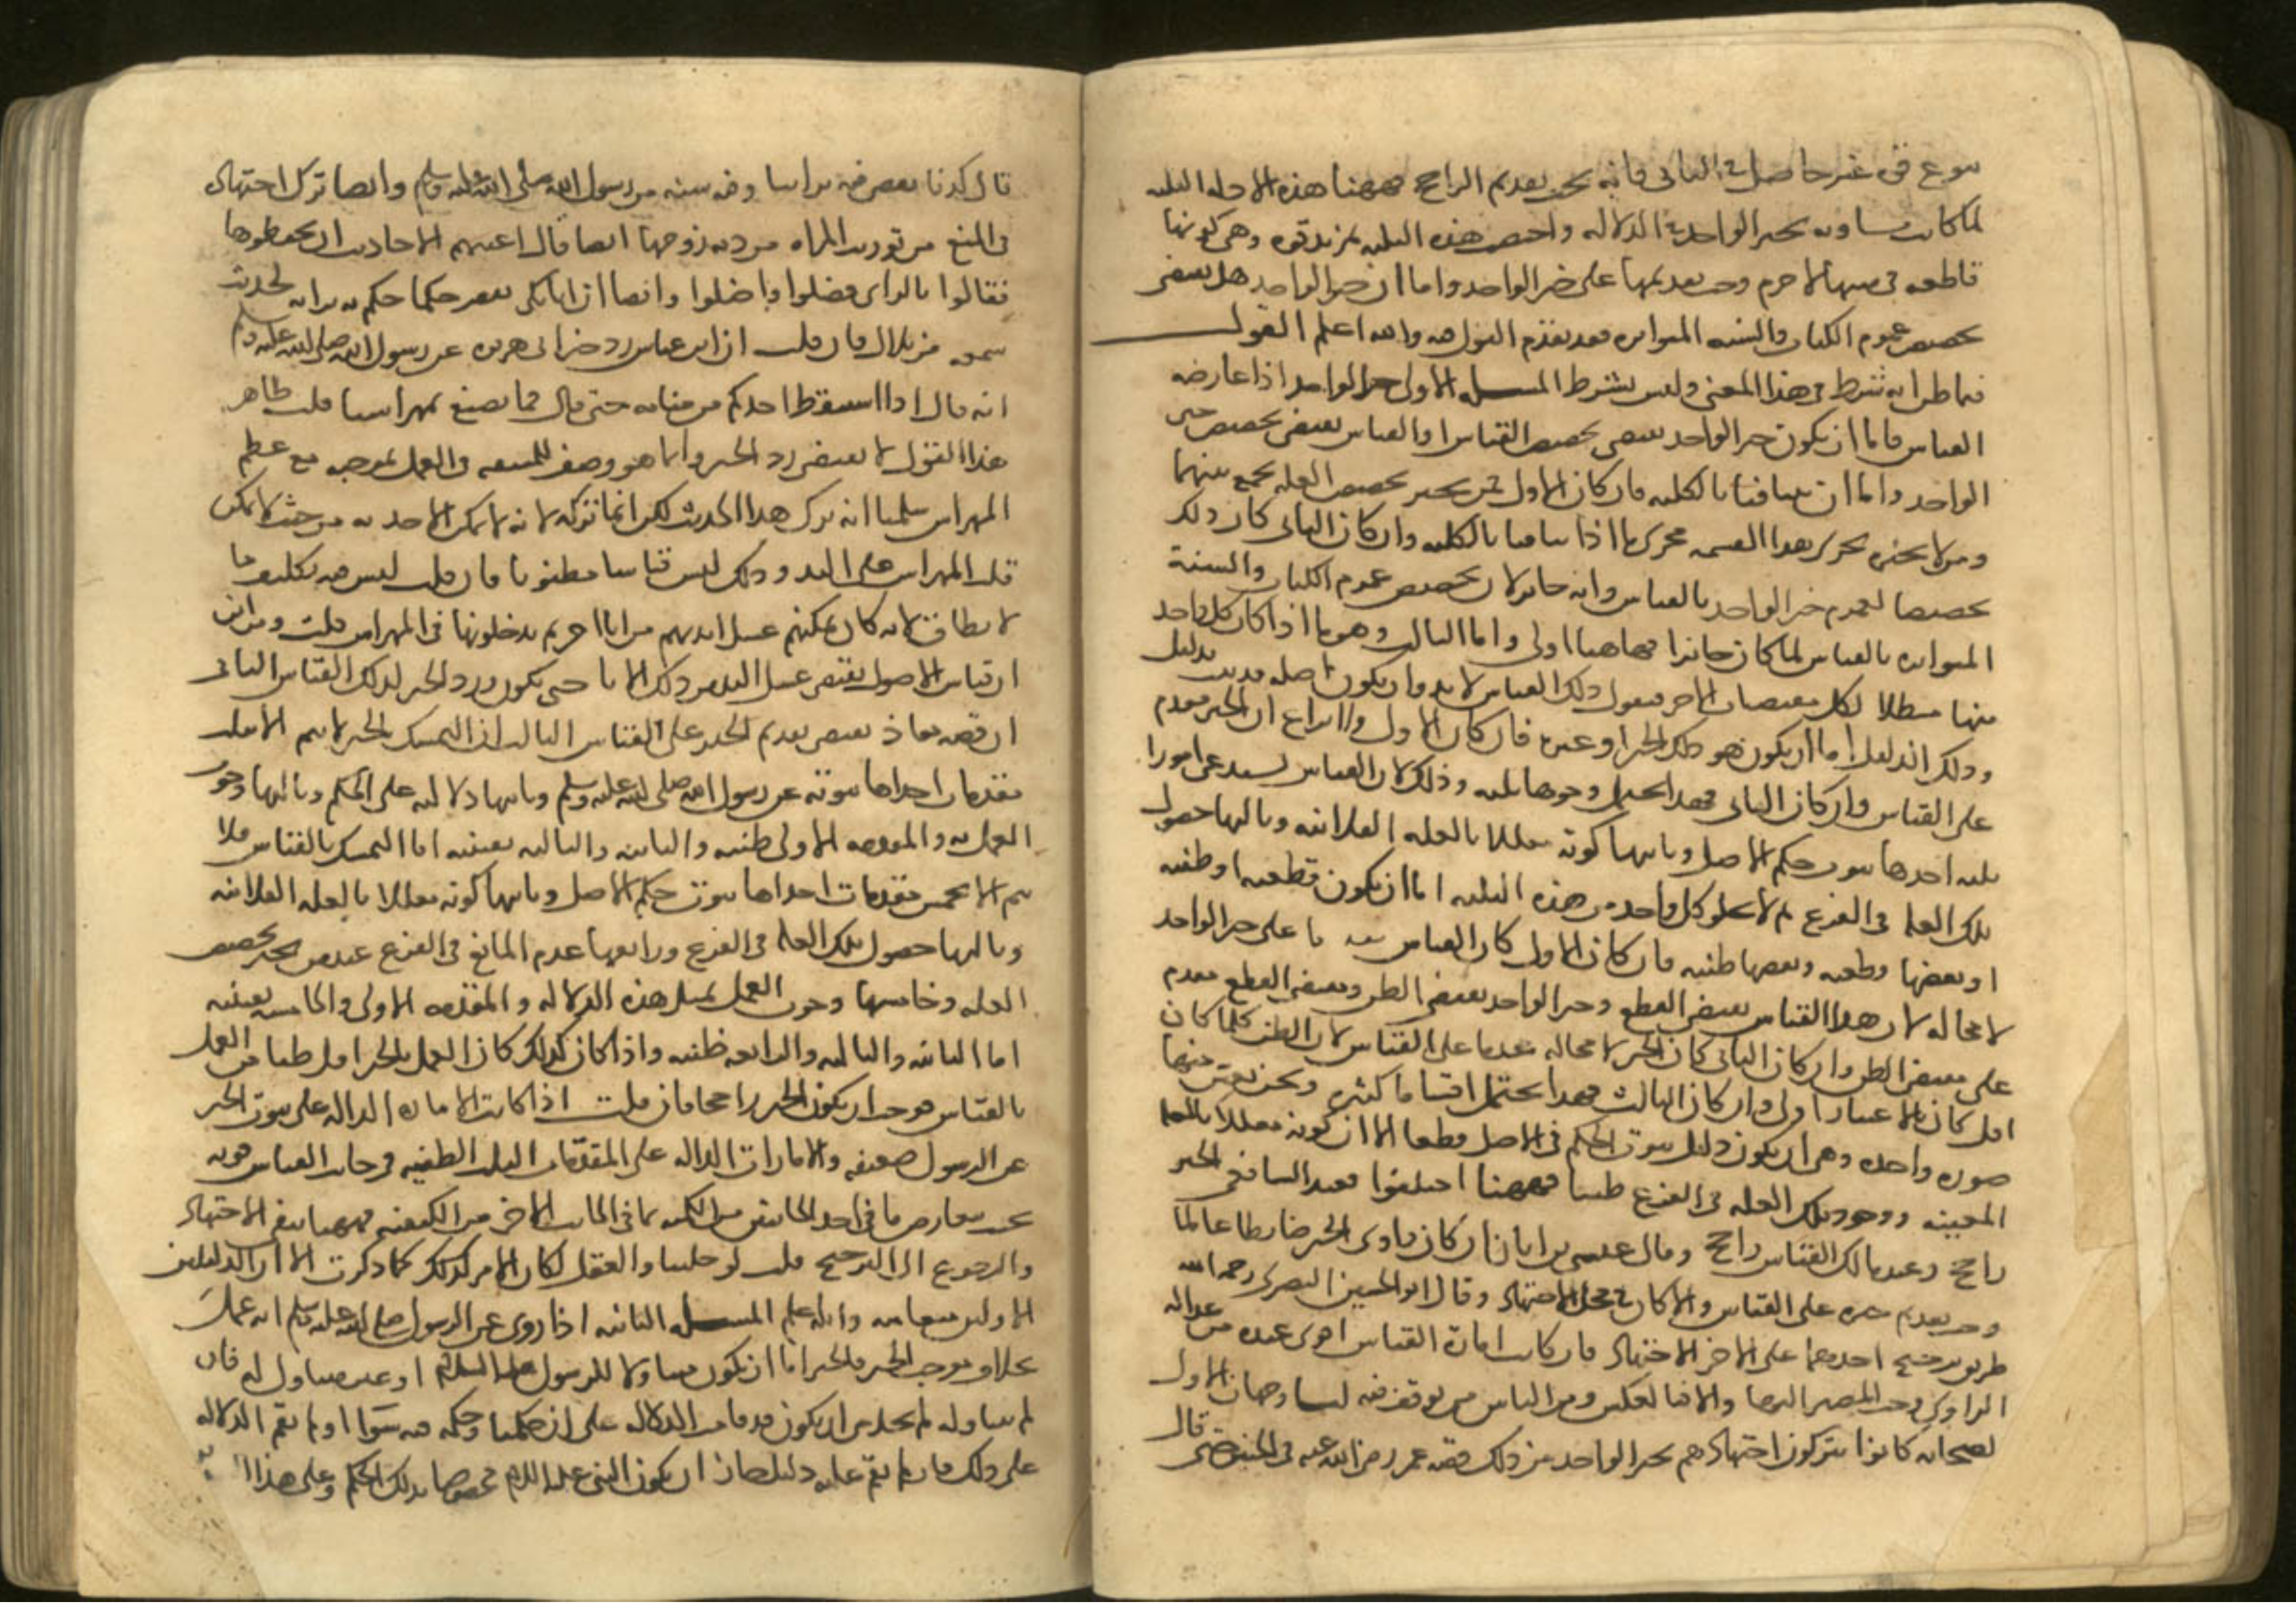 بنوع قوى غير حاصل في الثاني فانه يجب تقديم الراجح فههنا هذه الادله الثلثه
لما كانت مساويه لخبر الواحد في الدلاله واختصت هذه الثلثه بمزيد قوه وهي كونها
قاطعه في متنها لا جرم وجب تقديمها على خبر الواحد واما ان خبر الواحد هل يقتضى
تخصيص عموم الكتاب والسنه المتواتره فقد تقدم القول فيه والله اعلم القول
فيما ظن انه شرط في هذا المعنى وليس بشرط المسله الاولى خبر الواحد اذا عارضه
القياس فاما ان يكون خبر الواحد يقتضى تخصيص القياس او القياس يقتضى تخصيص خبر
الواحد واما ان يتنافيا بالكليه فان كان الاول فمن يجيز تخصيص العله يجمع بينهما
ومن لا يجيزه يجرى هذا القسم مجرى ما اذا تنافيا بالكليه وان كان الثاني كان ذلك
تخصيصا لعموم خبر الواحد بالقياس وانه جائز لان تخصيص عموم الكتاب والسنة
المتواتره بالقياس لما كان جائزا فهاهنا اولى واما الثالث وهو ما اذا كان كل واحد
منهما مبطلا لكل مقتضيات الاخر فنقول ذلك القياس لا بد وان يكون اصله قد ثبت بدليل
وذلك الدليل اما ان يكون هو ذلك الخبر او غيره فان كان الاول فلا نزاع ان الخبر مقدم
على القياس وان كان الثاني فهذا يحتمل وجوها ثلثه وذلك لان القياس يستدعى امورا
ثلثه احدها ثبوت حكم الاصل وثانيها كونه معللا بالعله الفلانيه وثالثها حصول
تلك العله في الفرع ثم لا يخلو كل واحد من هذه الثلثه اما ان يكون قطعيه او ظنيه
او بعضها قطعيه وبعضها ظنيه فان كان الاول كان القياس مقدما على خبر الواحد
لا محاله لان هذا القياس يقتضى القطع وخبر الواحد يقتضى الظن ومقتضى القطع مقدم
على مقتضى الظن وان كان الثاني كان الخبر لا محاله مقدما على القياس لان الظن كلما كان
اقل كان بالاعتبار اولى وان كان الثالث فهذا يحتمل اقساما كثيره ونحن نعين منها
صوره واحده وهي ان يكون دليل ثبوت الحكم في الاصل قطعيا الا ان كونه معللا بالعله
المعينه ووجود تلك العله في الفرع ظنيا فههنا اختلفوا فعند الشافعي الخبر
راجح وعند مالك القياس راجح وقال عيسى بن ابان ان كان راوى الخبر ضابطا عالما
وجب تقديم خبره على القياس والا كان في محل الاجتهاد وقال ابو الحسين البصري رحمه الله
طريق ترجيح احدهما على الاخر الاجتهاد فان كانت امارة القياس اقوى عنده من عداله
الراوى وجب المصير اليها والا فبالعكس ومن الناس من توقف فيه لنا وجهان الاول
الصحابه كانوا يتركون اجتهادهم بخبر الواحد من ذلك قصه عمر رضى الله عنه في الجنين حتى قال
قال كدنا نقضى فيه براينا وفيه سنه من رسول الله صلى الله عليه وسلم وايضا ترك اجتهاده
في المنع من توريث المراه من ديه زوجها ايضا قال اعيتهم الاحاديث ان يحفظوها
فقالوا بالراى فضلوا واضلوا وايضا ان ابا بكر نقض حكما حكم به برايه لحديث
سمعه من بلال فان قلت ان ابن عباس رد خبر ابى هريره عن رسول الله صلى الله عليه وسلم
انه قال اذا استيقظ احدكم من منامه حتى قال فما نصنع بمهراسنا قلت ظاهر
هذا القول لا يقتضى رد الخبر وانما هو وصف للمشقه في العمل بموجبه مع عظم
المهراس سلمنا انه ترك هذا الحديث لكن انما تركه لانه لا يمكن الاخذ به من حيث لا يمكن
قلب المهراس على اليد وذلك ليس قياسا مظنونا فان قلت ليس فيه تكليف ما
لا يطاق لانه كان يمكنهم غسل ايديهم من اناء اخر ثم يدخلونها في المهراس قلت ومن اين
ان قياس الاصول يقتضى غسل اليد من ذلك الاناء حتى يكون رد الخبر لذلك القياس الثانى
ان قصه معاذ تقتضى تقديم الخبر على القياس الثالث ان التمسك بالخبر لا يتم الا بثلث
مقدمات احداها ثبوته عن رسول الله صلى الله عليه وسلم وثانيها دلالته على الحكم وثالثها وجوب
العمل به والمقدمه الاولى ظنيه والثانيه والثالثه يقينيه اما التمسك بالقياس فلا
يتم الا بخمس مقدمات احداها ثبوت حكم الاصل وثانيها كونه معللا بالعله الفلانيه
وثالثها حصول تلك العله في الفرع ورابعها عدم المانع في الفرع عند من يجيز تخصيص
العله وخامسها وجوب العمل بمثل هذه الدلاله والمقدمه الاولى والخامسه يقينيه
اما الثانيه والثالثه والرابعه ظنيه واذا كان كذلك كان العمل بالخبر اقل ظنا من العمل
بالقياس فوجب ان يكون الخبر راجحا فان قلت اذا كانت الاماره الداله على ثبوت الخبر
عن الرسول ضعيفه والامارات الداله على المقدمات الثلث الظنيه في جانب القياس قويه
بحيث يتعارض ما في احد الجانبين من الكميه بما في الجانب الاخر من الكيفيه فههنا يبقى الاجتهاد
والرجوع الى الترجيح قلت لو خلينا والعقل لكان الامر كذلك كما ذكرت الا ان الدليلين
الاولين منعا منه والله اعلم المسله الثانيه اذا روى عن الرسول صلى الله عليه وسلم انه عمل
بخلاف موجب الخبر فالخبر اما ان يكون متناولا للرسول عليه السلام او غير متناول له فان
لم يتناوله لم يخل من ان يكون قد قامت الدلاله على ان حكمنا وحكمه فيه سواء او لم تقم الدلاله
على ذلك فان لم تقم عليه دليل جاز ان يكون النبي عليه السلام مخصوصا بذلك الحكم وعلى هذا